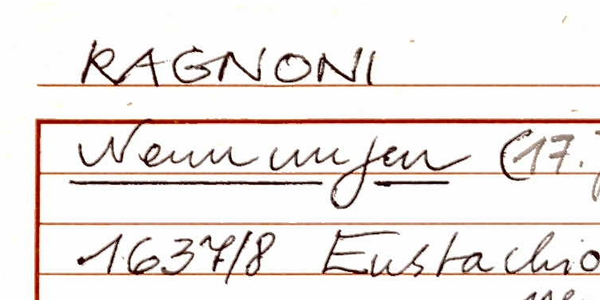 RAGNONI
Nennungen (17.
1637/8 Eustachio